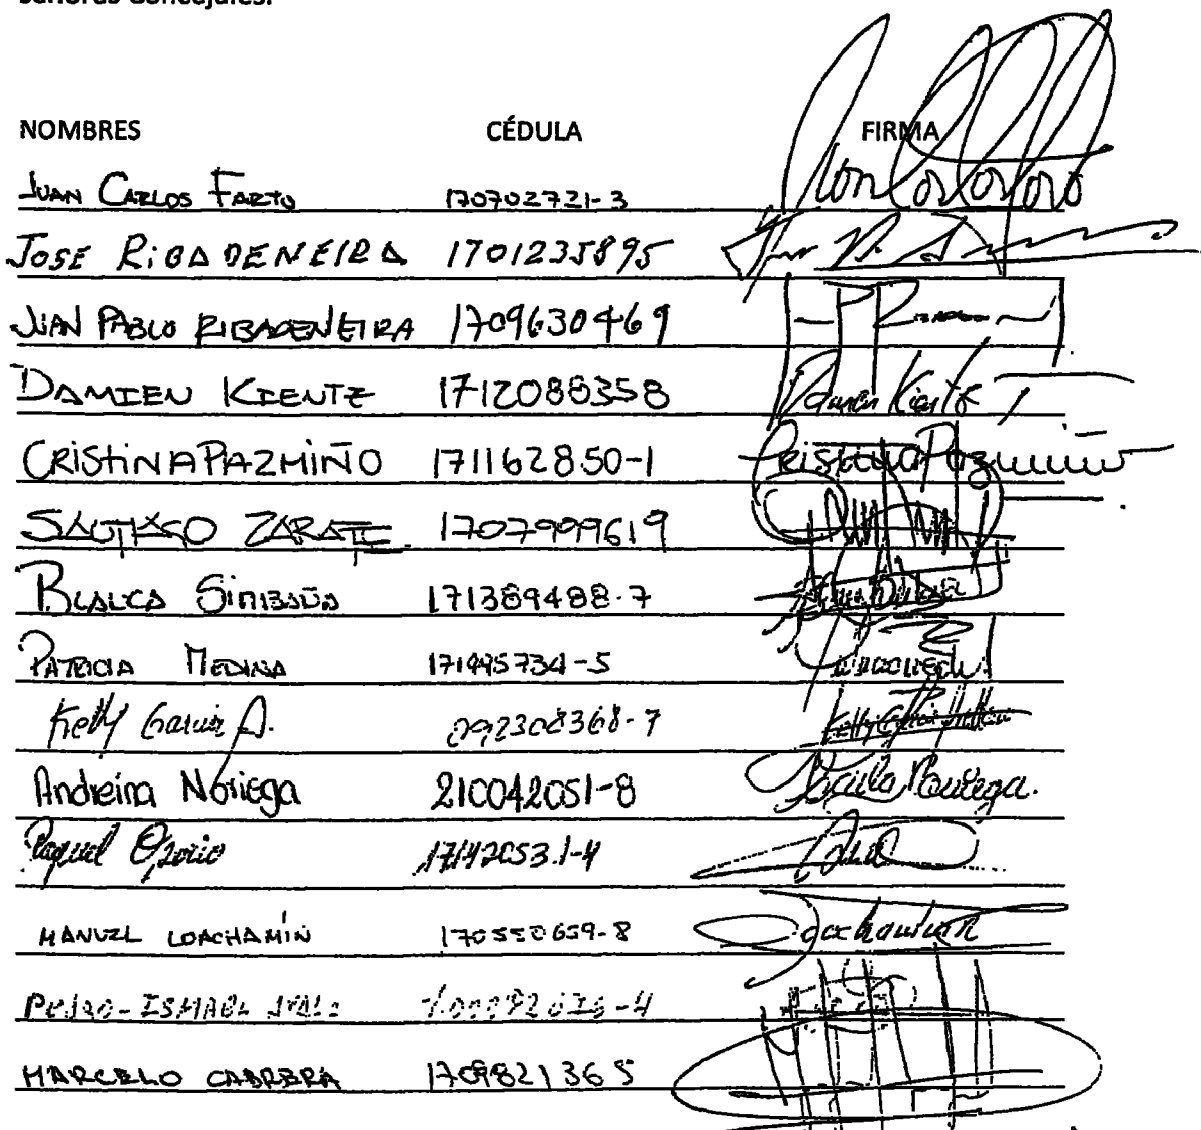 señoras concejales.
NOMBRES CÉDULA FIRMA
JUAN CARLOS FARTO 170702721-3
JOSE RIBADENEIRA 1701235895
JUAN PABLO RIBADENEIRA 1709630469
DAMIEN KIENTZ 1712088358 Damien Kientz
CRISTINA PAZMIÑO 171162850-1 Cristina Pazmiño
SANTIAGO ZARATE 1707999619
BLANCA SIMBAÑA 171389488-7
PATRICIA MEDINA 171495734-5
Kelly Garcia A. 092308368-7
Andreina Noriega 210042051-8 Noriega.
Raquel Osorio 17142053.1-4
MANUEL LOACHAMÍN 170550659-8 Loachamin
PEDRO-ISMAEL
MARCELO CABRERA 1709821365